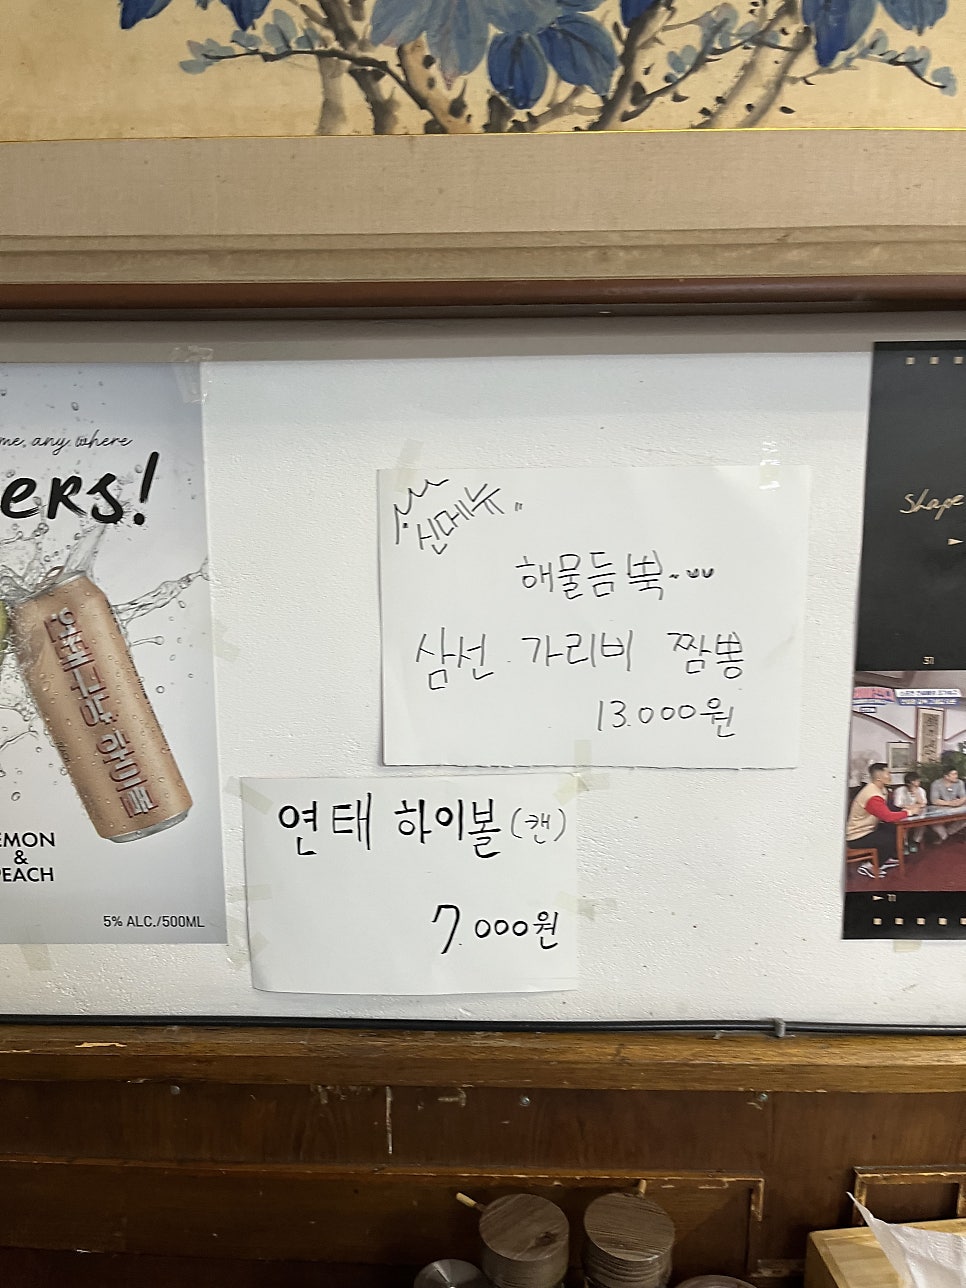 me, any where
ers!
연태고량 하이볼
EMON
&
PEACH
5% ALC./500ML
신메뉴..
해물듬뿍~
삼선 가리비 짬뽕
13.000원
연태 하이볼 (캔)
7.000원
Shape
31
11